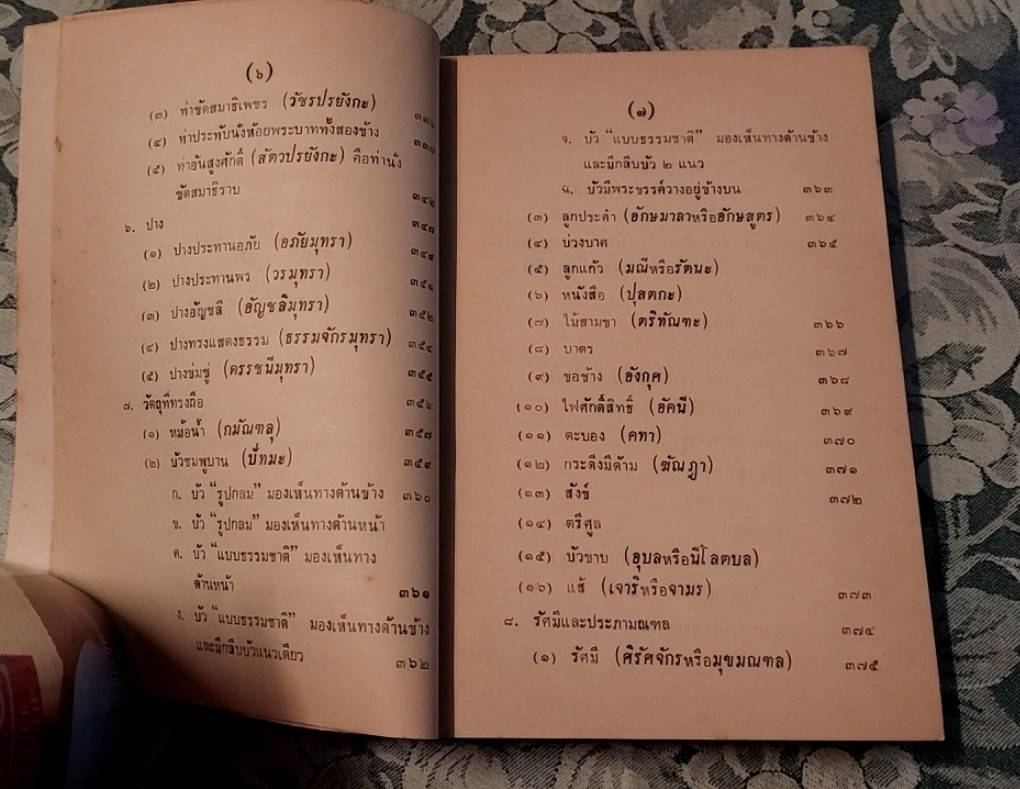 (๖)
(๓) ท่าขัดสมาธิเพชร (วัชรปรยังกะ) ๓๓๖
(๔) ท่าประทับนั่งห้อยพระบาททั้งสองข้าง ๓๓๗
(๕) ท่าอันสูงศักดิ์ (สัตวปรยังกะ) คือท่านั่ง
ขัดสมาธิราบ ๓๔๒
๖. ปาง ๓๔๗
(๑) ปางประทานอภัย (อภัยมุทรา) ๓๔๙
(๒) ปางประทานพร (วรมุทรา) ๓๕๑
(๓) ปางอัญชลี (อัญชลิมุทรา) ๓๕๒
(๔) ปางทรงแสดงธรรม (ธรรมจักรมุทรา) ๓๕๔
(๕) ปางข่มขู่ (ดรรชนีมุทรา) ๓๕๕
๗. วัตถุที่ทรงถือ ๓๕๖
(๑) หม้อน้ำ (กมัณฑลุ) ๓๕๗
(๒) บัวชมพูบาน (ปัทมะ) ๓๕๙
ก. บัว “รูปกลม” มองเห็นทางด้านข้าง ๓๖๐
ข. บัว “รูปกลม” มองเห็นทางด้านหน้า
ค. บัว “แบบธรรมชาติ” มองเห็นทาง
ด้านหน้า ๓๖๑
ง. บัว “แบบธรรมชาติ” มองเห็นทางด้านข้าง
และมีกลีบบัวแนวเดียว ๓๖๒
(๗)
จ. บัว “แบบธรรมชาติ” มองเห็นทางด้านข้าง
และมีกลีบบัว ๒ แนว
ฉ. บัวมีพระขรรค์วางอยู่ข้างบน ๓๖๓
(๓) ลูกประคำ (อักษมาลาหรืออักษสูตร) ๓๖๔
(๔) บ่วงบาศ ๓๖๕
(๕) ลูกแก้ว (มณีหรือรัตนะ)
(๖) หนังสือ (ปุสตกะ)
(๗) ไม้สามขา (ตริทัณฑะ) ๓๖๖
(๘) บาตร ๓๖๗
(๙) ขอช้าง (อังกุศ) ๓๖๘
(๑๐) ไฟศักดิ์สิทธิ์ (อัคนี) ๓๖๙
(๑๑) ตะบอง (คทา) ๓๗๐
(๑๒) กระดิ่งมีด้าม (ฆัณฎา) ๓๗๑
(๑๓) สังข์ ๓๗๒
(๑๔) ตรีศูล
(๑๕) บัวขาบ (อุบลหรือนีโลตบล)
(๑๖) แส้ (เจาริหรือจามร) ๓๗๓
๘. รัศมีและประภามณฑล ๓๗๔
(๑) รัศมี (ศิรัศจักรหรือมุขมณฑล) ๓๗๕